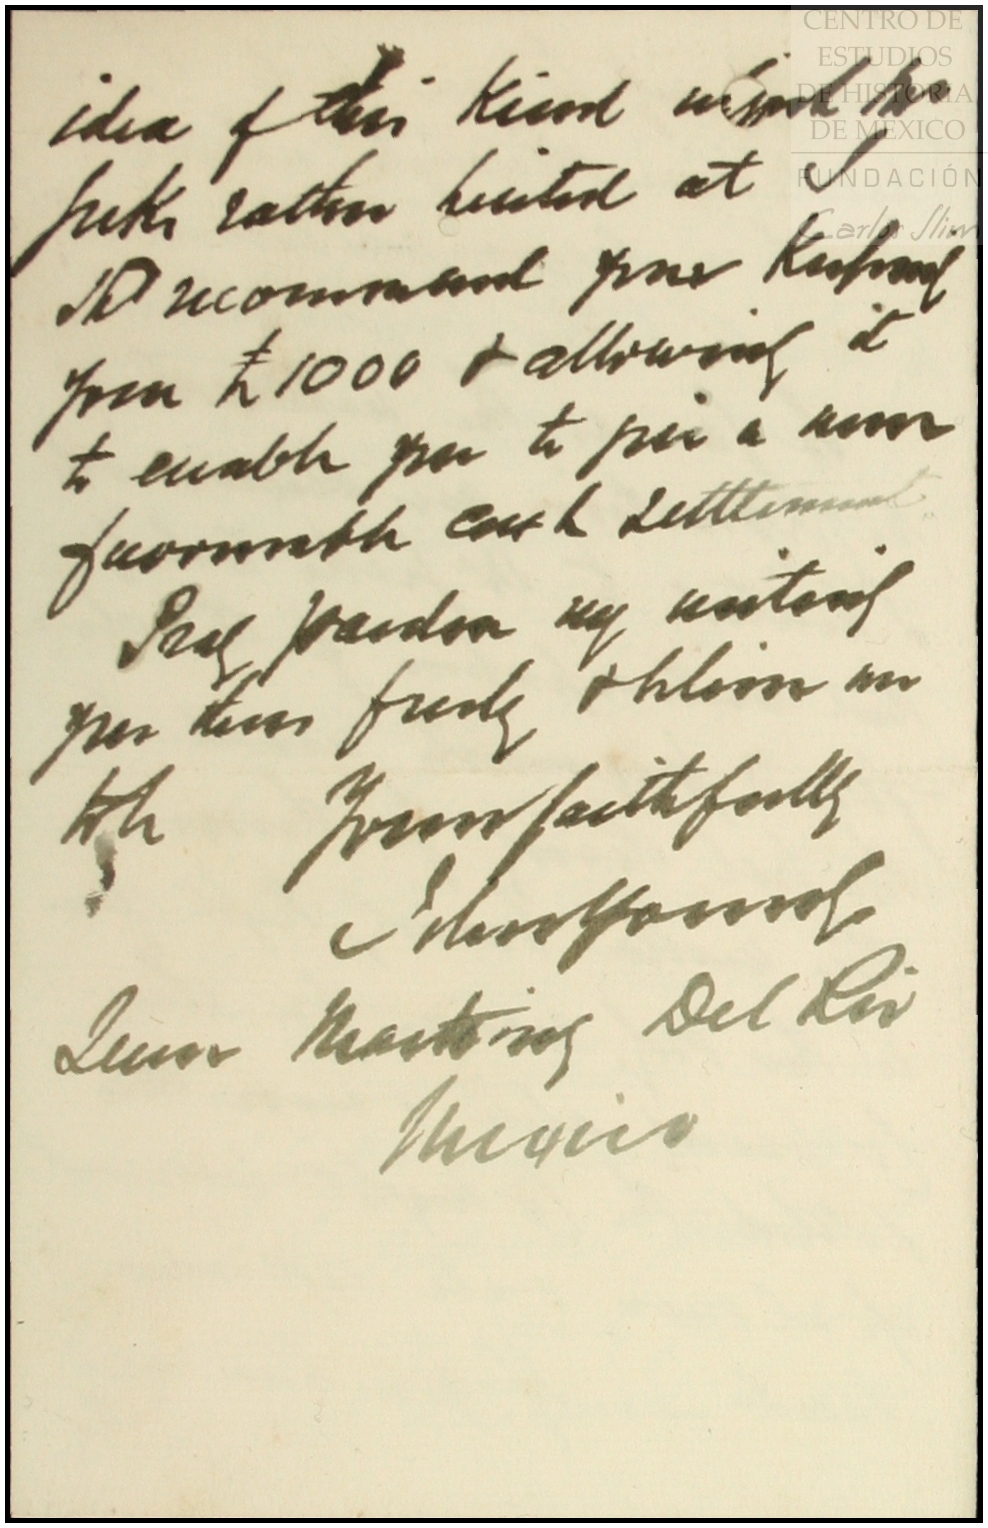 CENTRO DE
ESTUDIOS
DE HISTORIA
DE MÉXICO
FUNDACIÓN
Carlos Slim
idea of this kind might be
rather hinted at I
shd recommend your keeping
your £1000 & allowing it
to enable you to give a more
favourable cash settlement.
Pray pardon my writing
you thus freely & believe me
to be Yours faithfully
Del Rio
Mexico